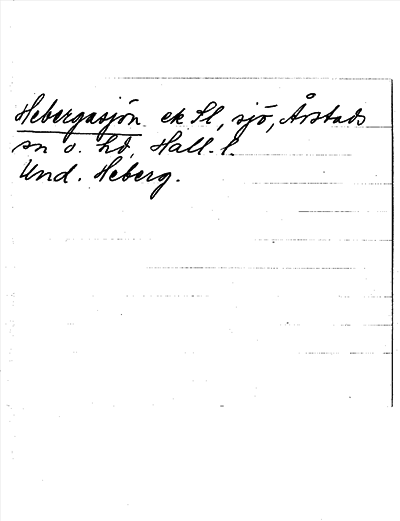 Hebergasjön ek Sl, sjö, Årstads
sn o. hd, Hall. l.
Und. Heberg.